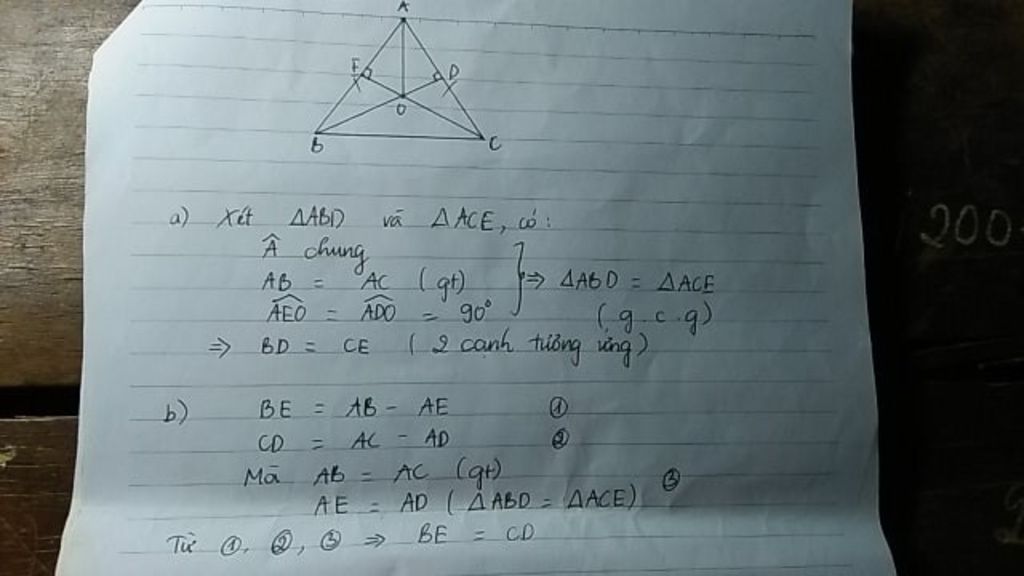 A
E D
O
B C
a) Xét ΔABD và ΔACE, có:
Â chung
AB = AC (gt) } ⇒ ΔABD = ΔACE
AEO = ADO = 90° (g.c.g)
⇒ BD = CE (2 cạnh tương ứng)
b) BE = AB - AE ①
CD = AC - AD ②
Mà AB = AC (gt)
AE = AD (ΔABD = ΔACE) ③
Từ ①, ②, ③ ⇒ BE = CD
200